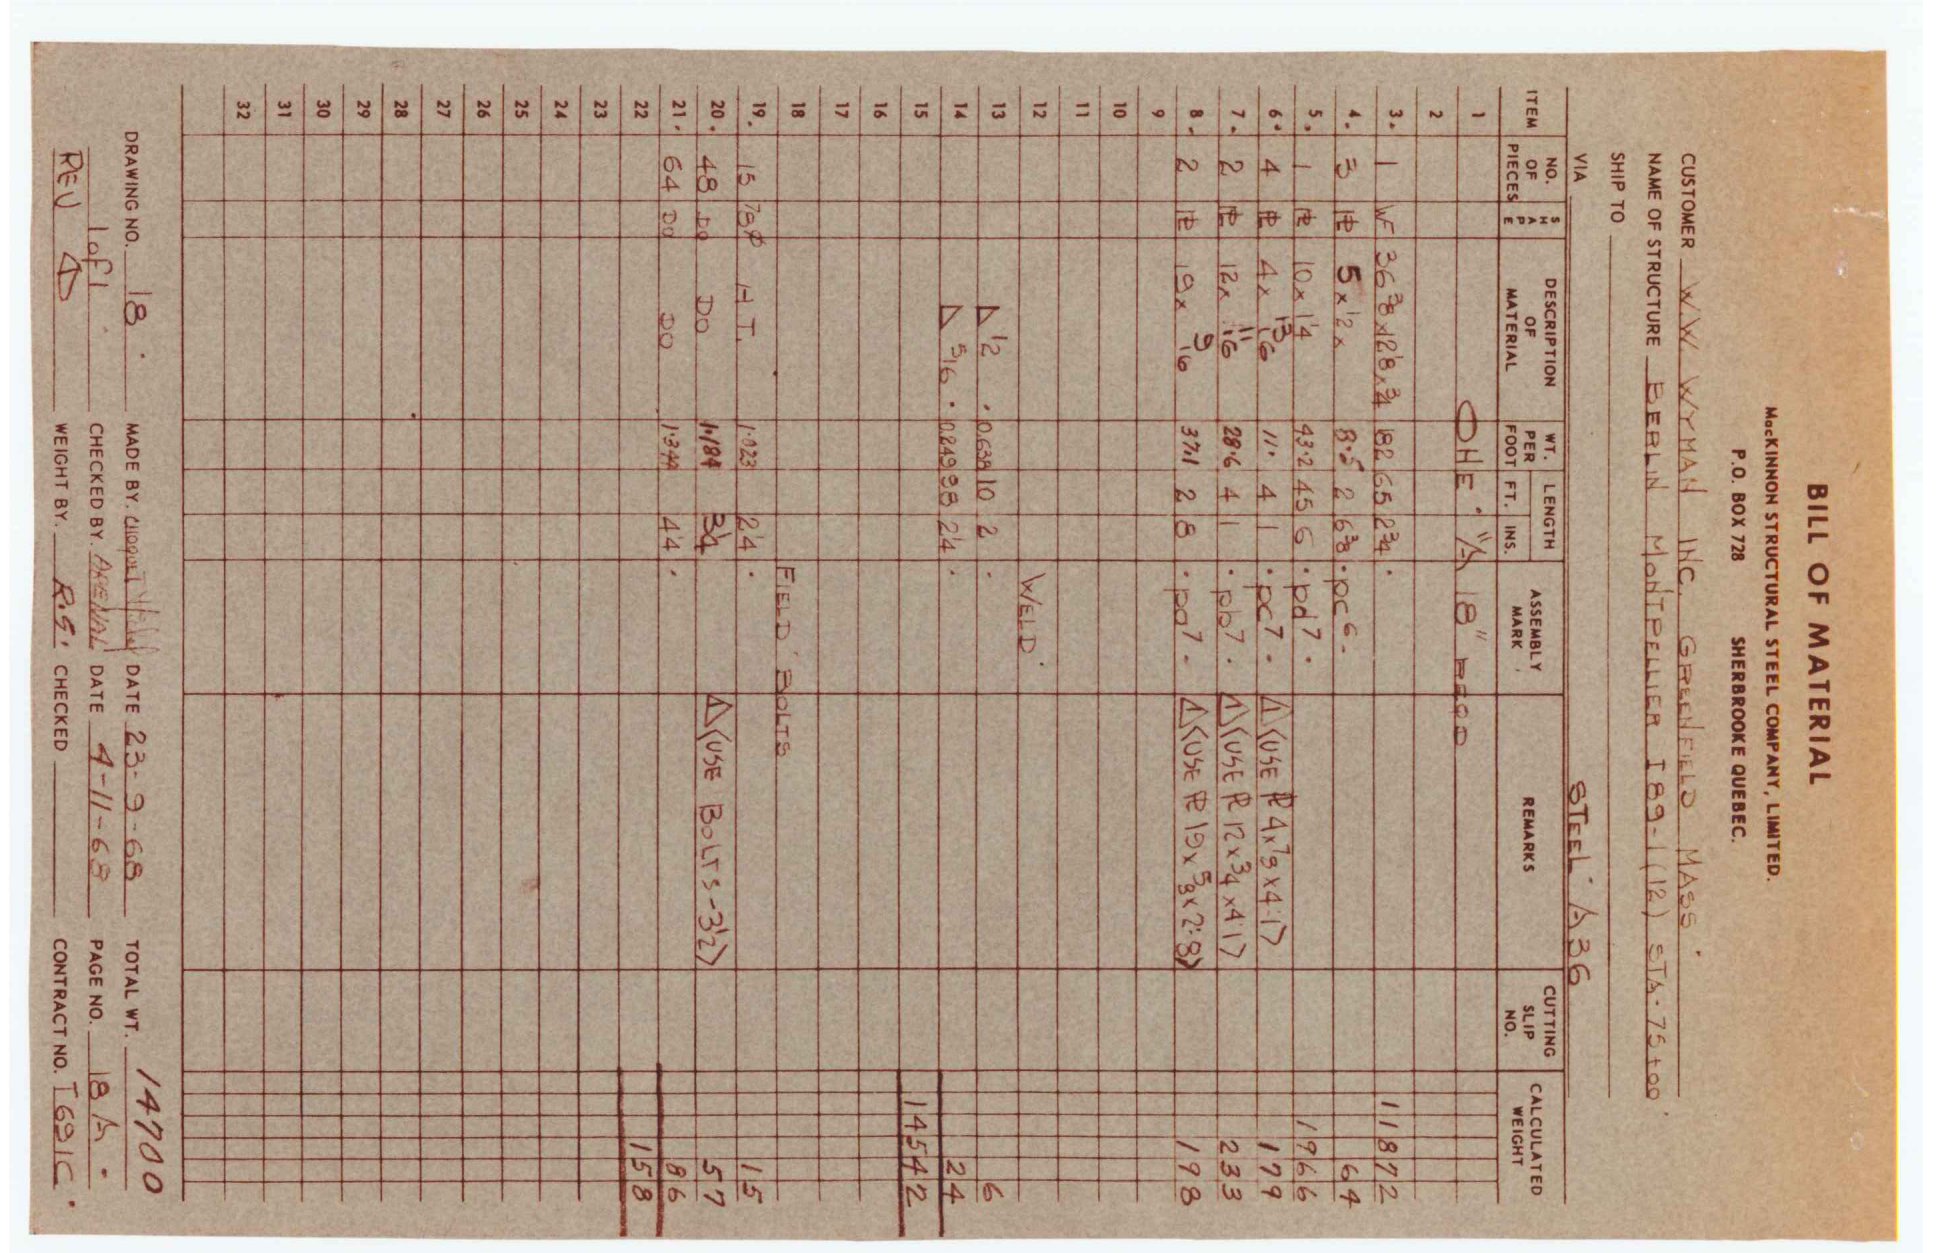 BILL OF MATERIAL
MacKINNON STRUCTURAL STEEL COMPANY, LIMITED.
P.O. BOX 728 SHERBROOKE QUEBEC.
CUSTOMER W.W. WYMAN INC. GREENFIELD MASS.
NAME OF STRUCTURE BERLIN MONTPELLIER I 89-1(12) STA. 75+00
SHIP TO
VIA STEEL A36
ITEM NO. OF PIECES SHAPE DESCRIPTION OF MATERIAL WT. PER FOOT LENGTH FT. INS. ASSEMBLY MARK REMARKS CUTTING SLIP NO. CALCULATED WEIGHT
1 ONE "A 18" REQD
2
3. 1 WF 36 3/8 x 12 1/8 x 3/4 182 65 2 3/4 11872
4. 3 PL 5 x 1/2 x 8.5 2 6 3/8 pc6 64
5. 1 PL 10 x 1 1/4 43.2 45 6 pd7 1966
6. 4 PL 4 x 13/16 11. 4 1 pc7 △ <USE PL 4 x 7/8 x 4.1> 179
7. 2 PL 12 x 11/16 28.6 4 1 pb7 △ <USE PL 12 x 3/4 x 4.1> 233
8. 2 PL 19 x 9/16 37.1 2 8 pa7 △ <USE PL 19 x 5/8 x 2.8> 198
9
10
11
12 WELD
13 △ 1/2 .0.638 10 2 6
14 △ 5/16 .0.249 98 2 1/4 24
15 14542
16
17
18 FIELD BOLTS
19. 15 7/8 ø H.T. 1.023 2 1/4 15
20. 48 DO DO 1.184 3 1/4 △ <USE BOLTS-3 1/2> 57
21. 64 DO DO 1.344 4 1/4 86
22 158
23
24
25
26
27
28
29
30
31
32
DRAWING NO. 18 MADE BY. DATE 23-9-68 TOTAL WT. 14700
1 of 1 CHECKED BY. ARENAL DATE 4-11-68 PAGE NO. 18 A
REV △ WEIGHT BY. R.S. CHECKED CONTRACT NO. T691C